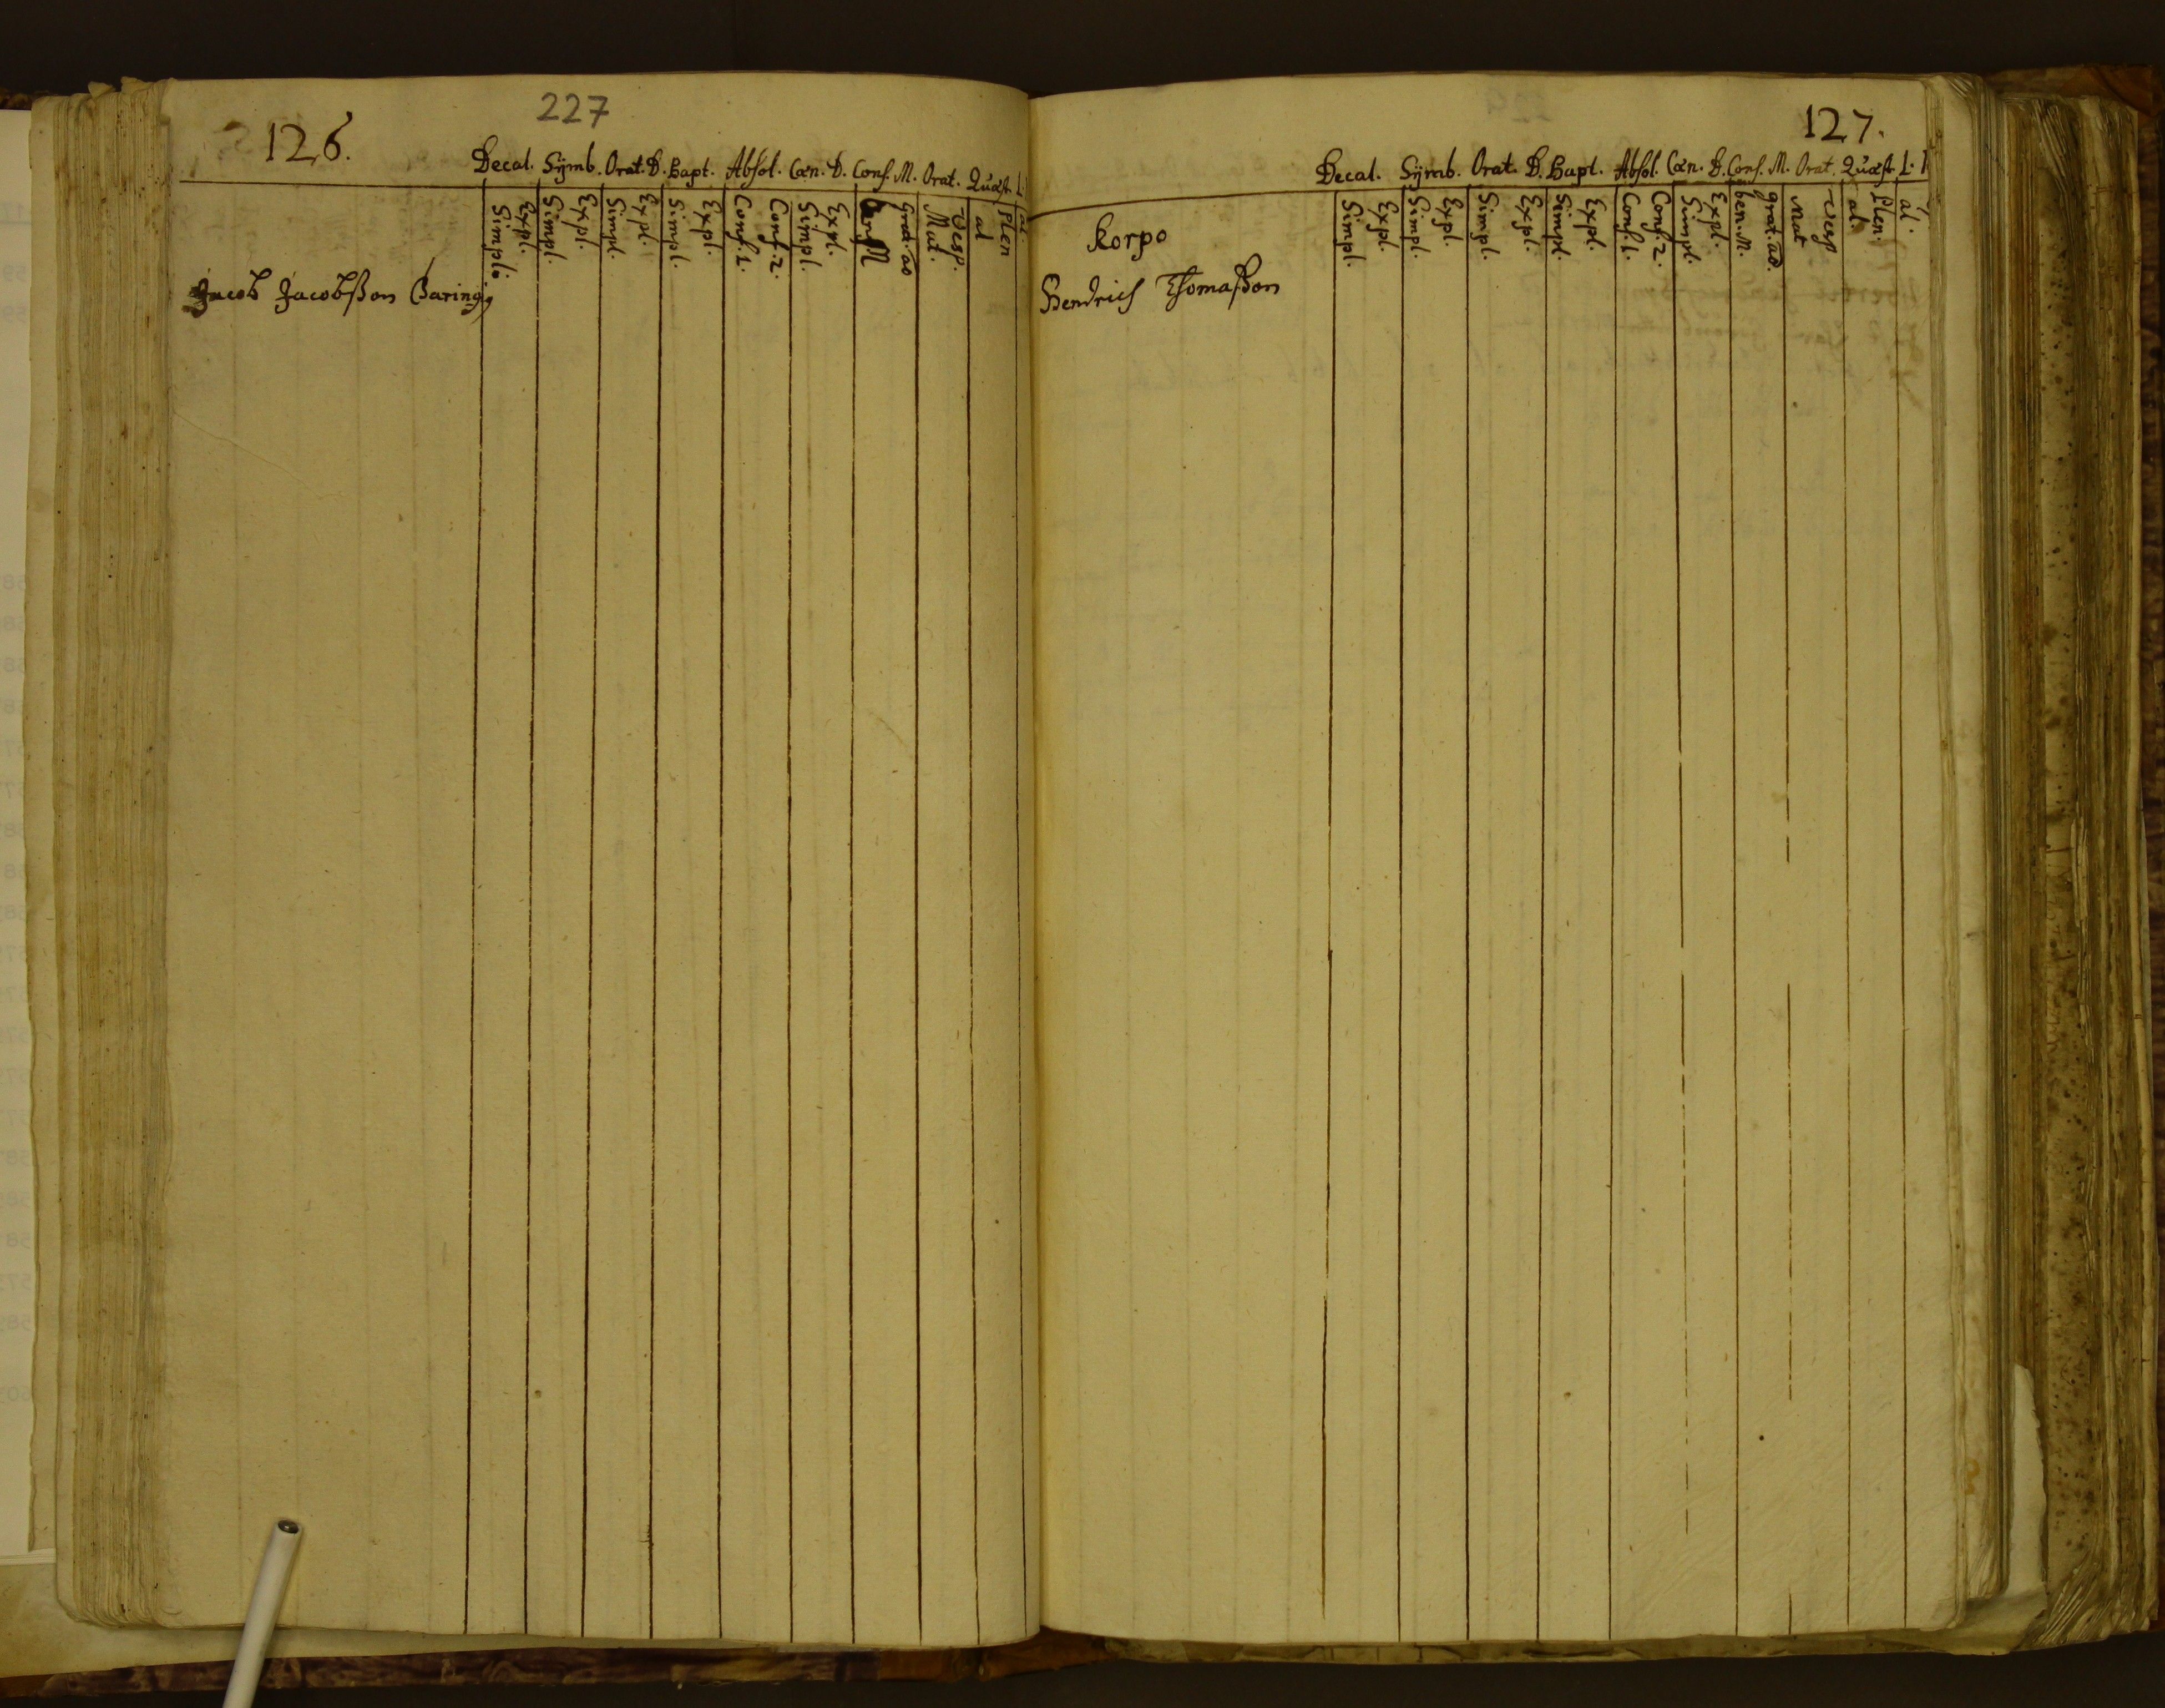 227
126.
Decal. Sÿmb. Orat. D. Bapt. Absol. Cœn. D. Conf. M. Orat. Quæst. L.
Simpl. Expl. Simpl. Expl. Simpl. Expl. Simpl. Expl. Conf. 1. Conf. 2. Simpl. Expl. Grat. ac Mat. Vesp. al Plen al.
Jacob Jacobßon
127.
Decal. Sÿmb. Orat. D. Bapt. Absol. Cœn. D. Conf. M. Orat. Quæst. L. I
Simpl. Expl. Simpl. Expl. Simpl. Expl. Simpl. Expl. Conf. 1. Conf. 2. Simpl. Expl. ben. M. grat. ac. Mat Vesp al. Plen. al.
Korpo
Hendrich Thomaßon